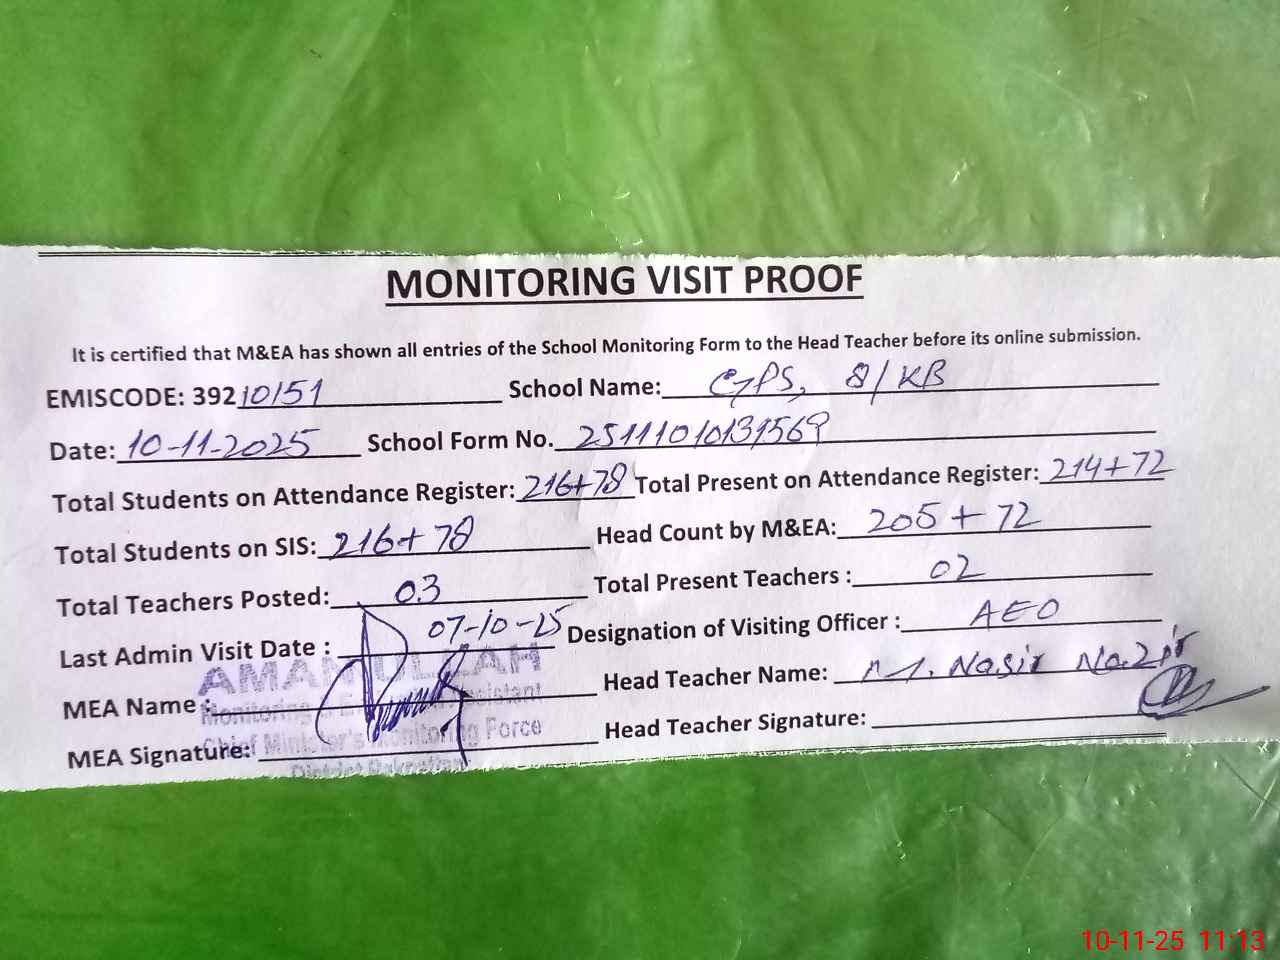 MONITORING VISIT PROOF
It is certified that M&EA has shown all entries of the School Monitoring Form to the Head Teacher before its online submission.
EMISCODE: 39210151 School Name: GPS, 8/KB
Date: 10-11-2025 School Form No. 25111010131569
Total Students on Attendance Register: 216+78 Total Present on Attendance Register: 214+72
Total Students on SIS: 216+78 Head Count by M&EA: 205+72
Total Teachers Posted: 03 Total Present Teachers : 02
Last Admin Visit Date : 07-10-25 Designation of Visiting Officer : AEO
MEA Name : AMANULLAH Head Teacher Name: M. Nasir Nazir
Monitoring & Assistant
MEA Signature: Chief Minister's Monitoring Force Head Teacher Signature:
District Pakpattan
10-11-25 11:13